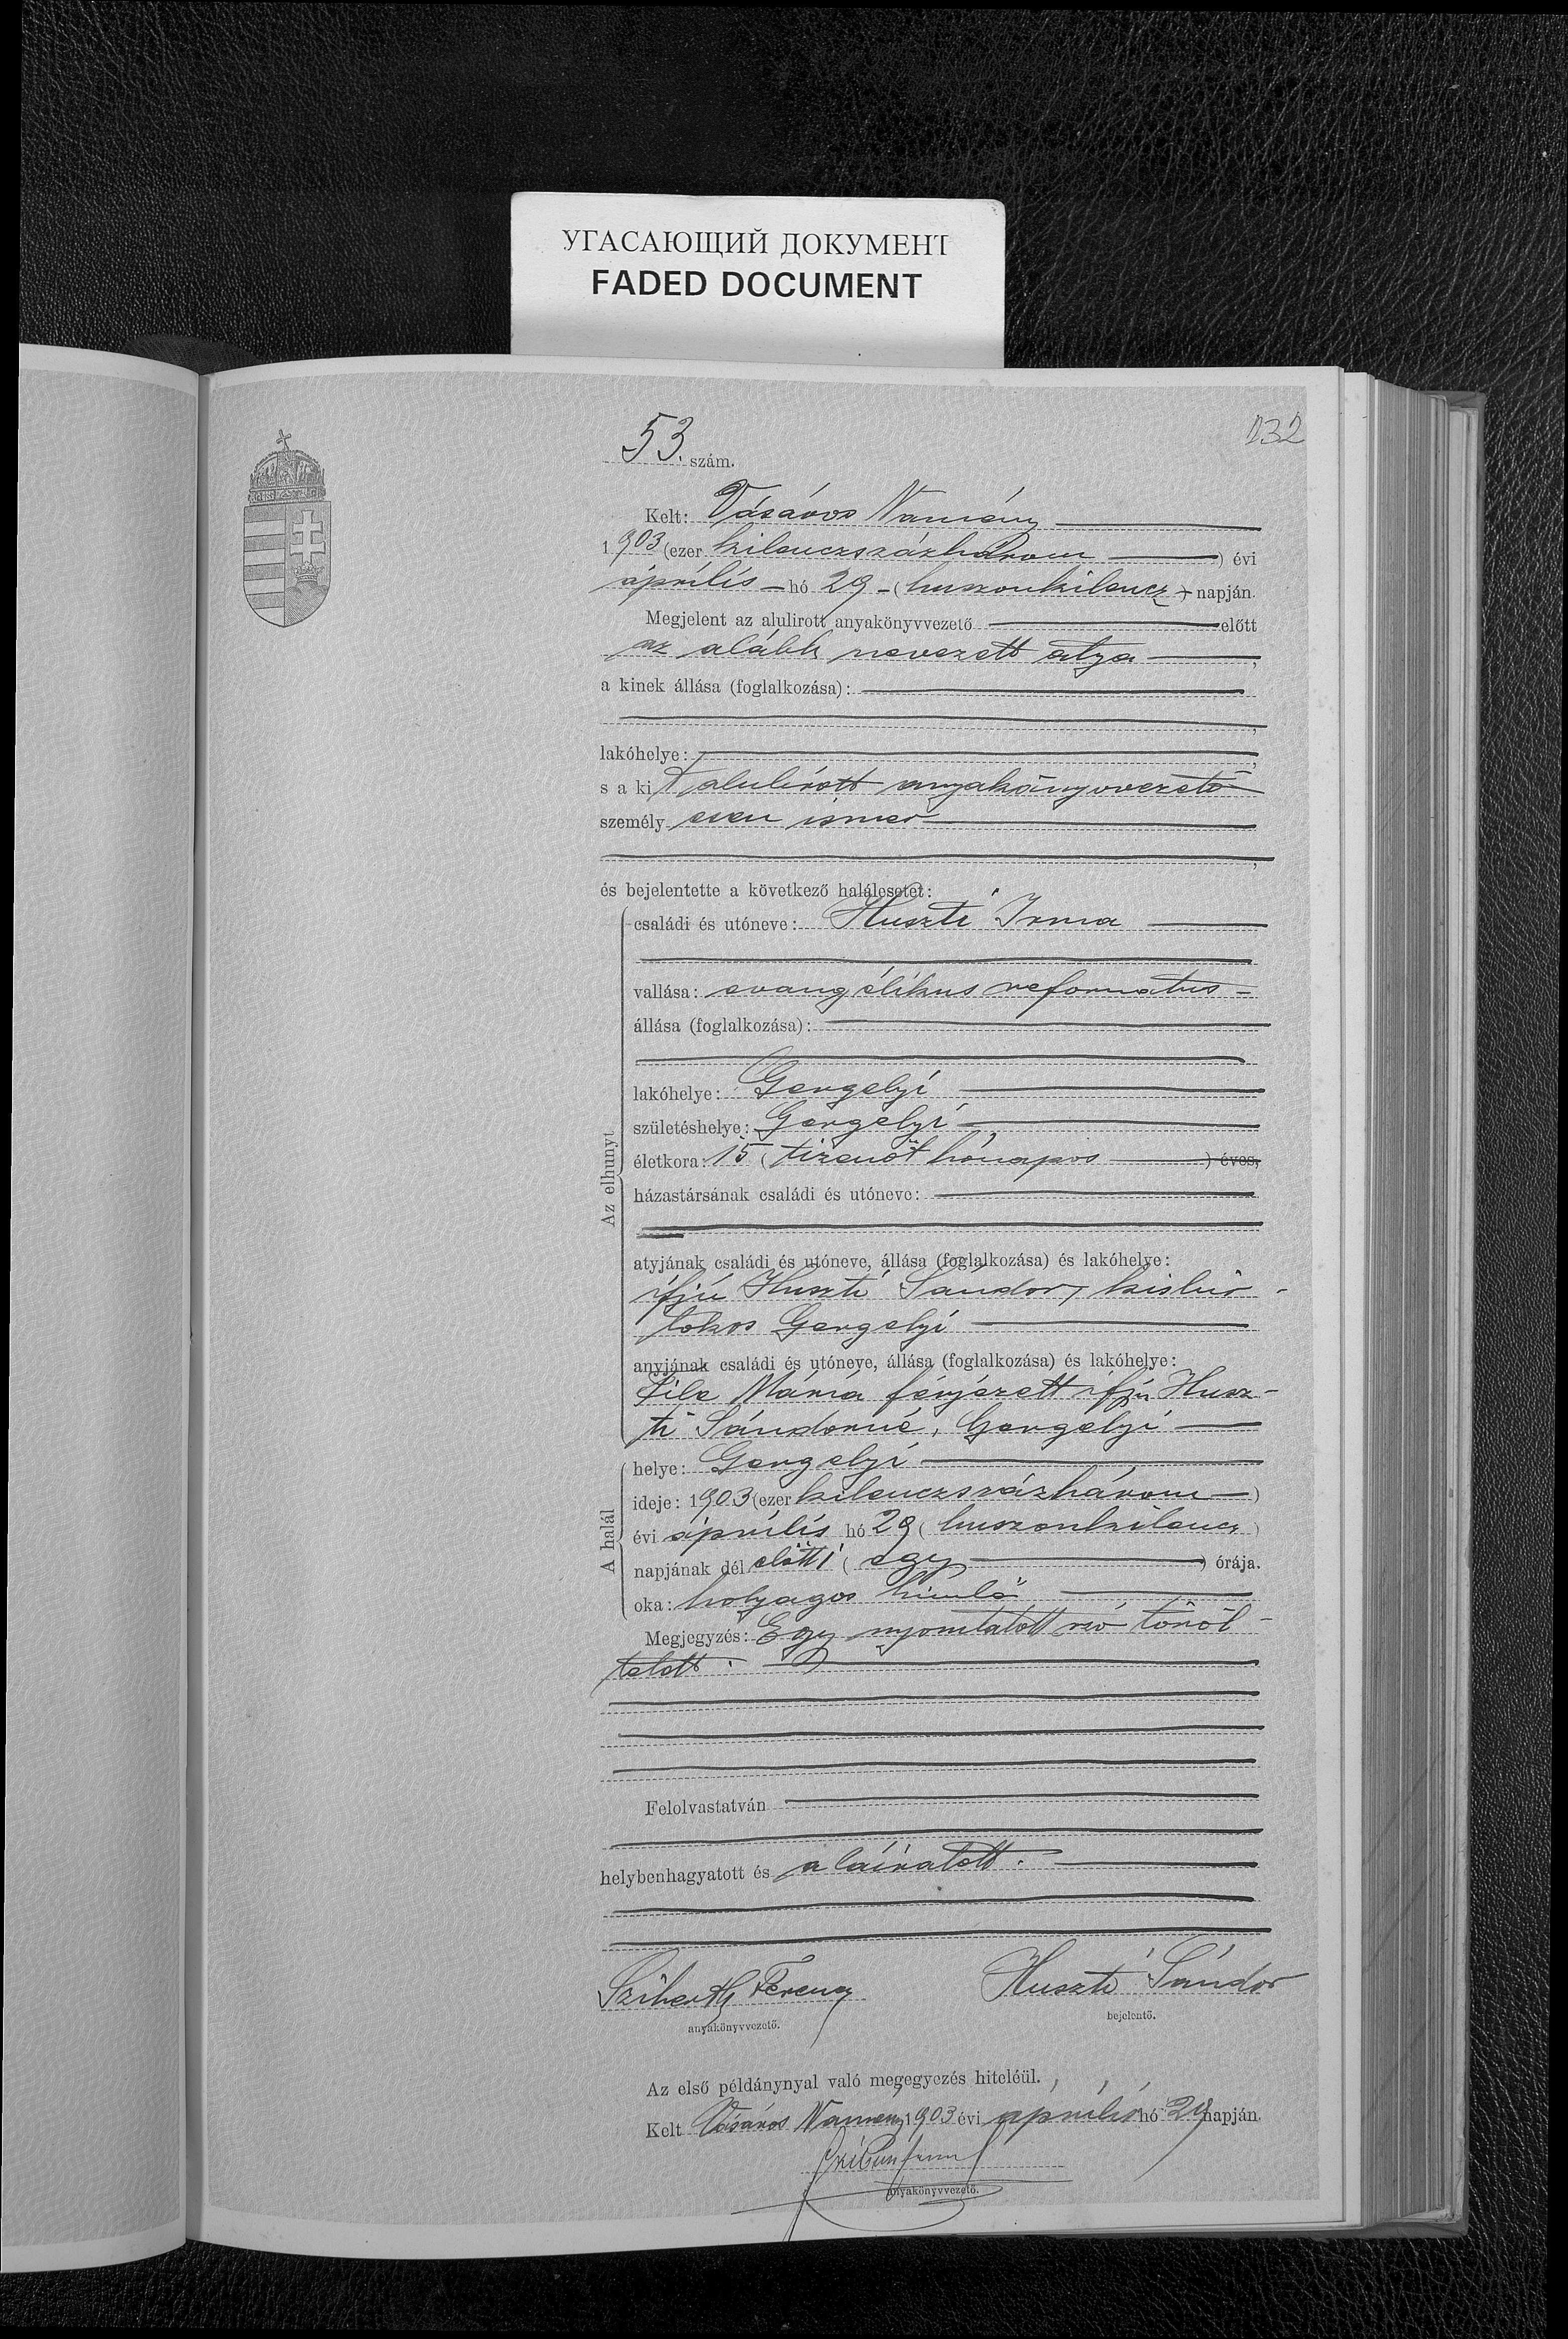 УГАСАЮЩИЙ ДОКУМЕНТ
FADED DOCUMENT
132
53. szám.
Kelt: Vásáros Namény
1903 (ezer kilenczszázhárom) évi
április hó 29 (huszonkilencz) napján.
Megjelent az alulirott anyakönyvvezető előtt
az alább nevezett atya,
a kinek állása (foglalkozása):
lakóhelye:
s a kit alulírott anyakönyvvezető
személyesen ismer
és bejelentette a következő halálesetet:
Az elhunyt
családi és utóneve: Huszti Irma
vallása: evangélikus reformatus
állása (foglalkozása):
lakóhelye: Gergelyi
születéshelye: Gergelyi
életkora: 15 (tizenöt hónapos) éves,
házastársának családi és utóneve:
atyjának családi és utóneve, állása (foglalkozása) és lakóhelye:
ifjú Huszti Sándor, kisbir-
tokos Gergelyi
anyjának családi és utóneve, állása (foglalkozása) és lakóhelye:
Mária férjezett ifjú Husz-
ti Sándorné, Gergelyi
A halál
helye: Gergelyi
ideje: 1903 (ezer kilenczszázhárom)
évi április hó 29 (huszonkilencz)
napjának dél előtt 1 (egy) órája.
oka: holyagos himlő
Megjegyzés: Egy nyomtatott szó töröl-
tetett.
Felolvastatván
helybenhagyatott és aláiratott.
Ferencz
anyakönyvvezető.
Huszti Sándor
bejelentő.
Az első példánynyal való megegyezés hiteléül.
Kelt Vásáros Namény 1903 évi április hó 29 napján.
anyakönyvvezető.